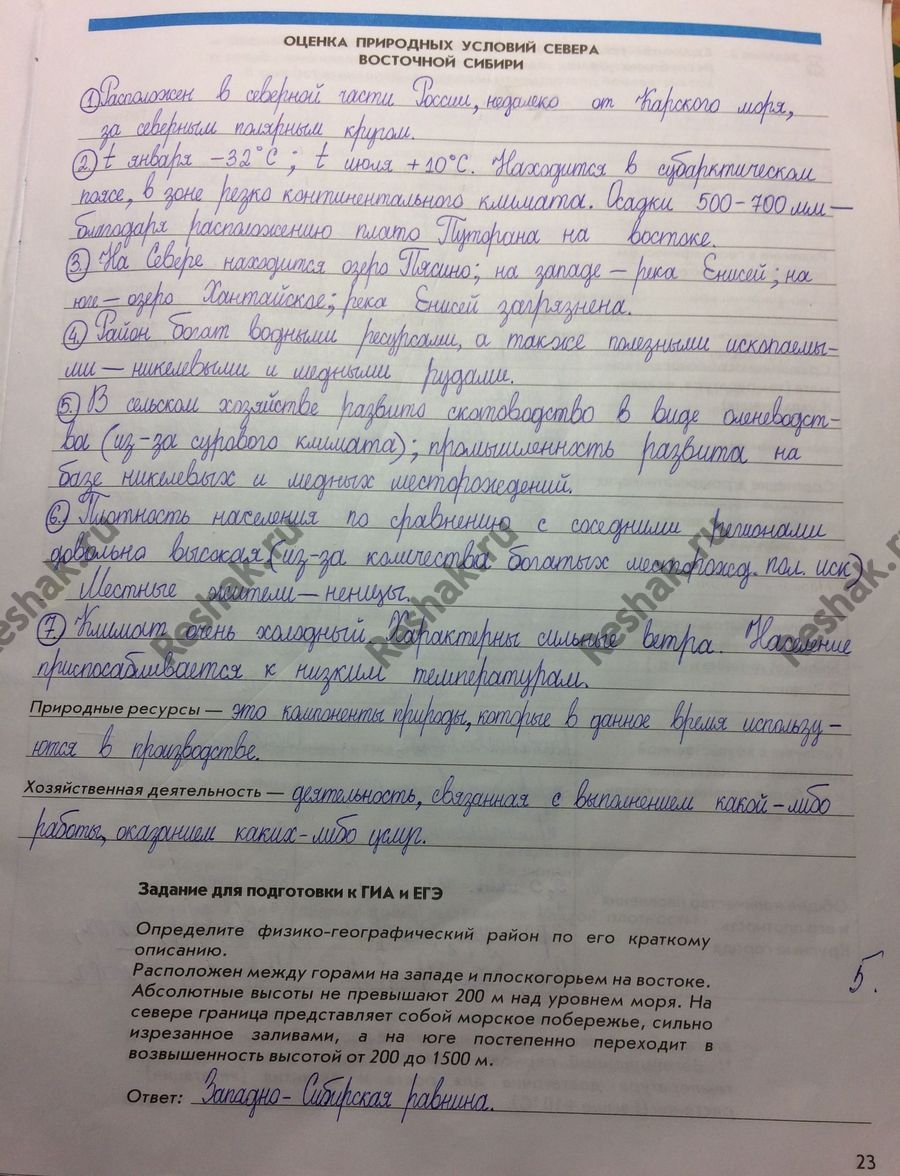 ОЦЕНКА ПРИРОДНЫХ УСЛОВИЙ СЕВЕРА
ВОСТОЧНОЙ СИБИРИ
1 Расположен в северной части России, недалеко от Карского моря,
за северным полярным кругом.
2 t января -32°C; t июля +10°C. Находится в субарктическом
поясе, в зоне резко континентального климата. Осадки 500-700 мм—
благодаря расположению плато Путорана на востоке.
3. На Севере находится озеро Пясино; на западе — река Енисей; на
юге — озеро Хантайское; река Енисей загрязнена.
4. Район богат водными ресурсами, а также полезными ископаемы-
ми — никелевыми и медными рудами.
5. В сельском хозяйстве развито скотоводство в виде оленеводст-
ва (из-за сурового климата); промышленность развита на
базе никелевых и медных месторождений.
6. Плотность населения по сравнению с соседними регионами
довольно высокая (из-за количества богатых месторожд. пол. иск)
Местные жители — ненцы.
7 Климат очень холодный. Характерны сильные ветра. Население
приспосабливается к низким температурам.
Природные ресурсы — это компоненты природы, которые в данное время использу-
ются в производстве.
Хозяйственная деятельность — деятельность, связанная с выполнением какой-либо
работы, оказанием каких-либо услуг.
Задание для подготовки к ГИА и ЕГЭ
Определите физико-географический район по его краткому
описанию.
Расположен между горами на западе и плоскогорьем на востоке.
Абсолютные высоты не превышают 200 м над уровнем моря. На
севере граница представляет собой морское побережье, сильно
изрезанное заливами, а на юге постепенно переходит в
возвышенность высотой от 200 до 1500 м.
5.
Ответ: Западно-Сибирская равнина.
23
Reshak.ru
Reshak.ru
Reshak.ru
Reshak.ru